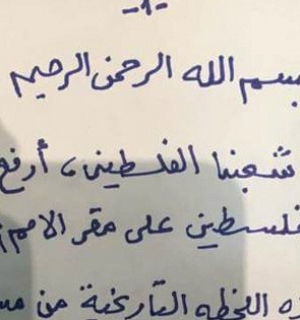 -١-
بسم الله الرحمن الرحيم
شعبنا الفلسطيني، أرفع
فلسطين على مقر الامم
اللحظه التاريخية من